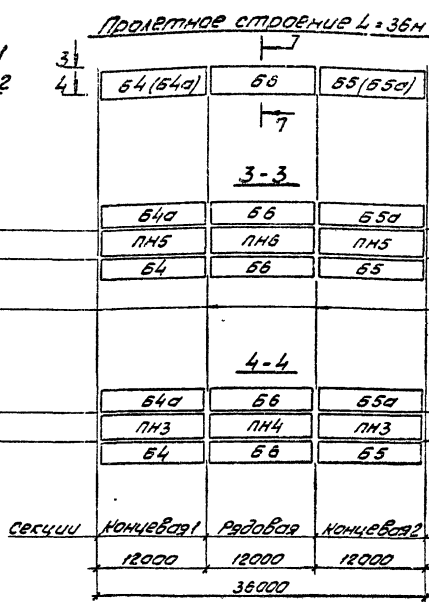 Пролетное строение L=36м
1
3
7
2
4
Б4(Б4а) Б6 Б5(Б5а)
7
3-3
Б4а Б6 Б5а
ПН5 ПН6 ПН5
Б4 Б6 Б5
4-4
Б4а Б6 Б5а
ПН3 ПН4 ПН3
Б4 Б6 Б5
секции Концевая1 Рядовая Концевая2
12000 12000 12000
36000